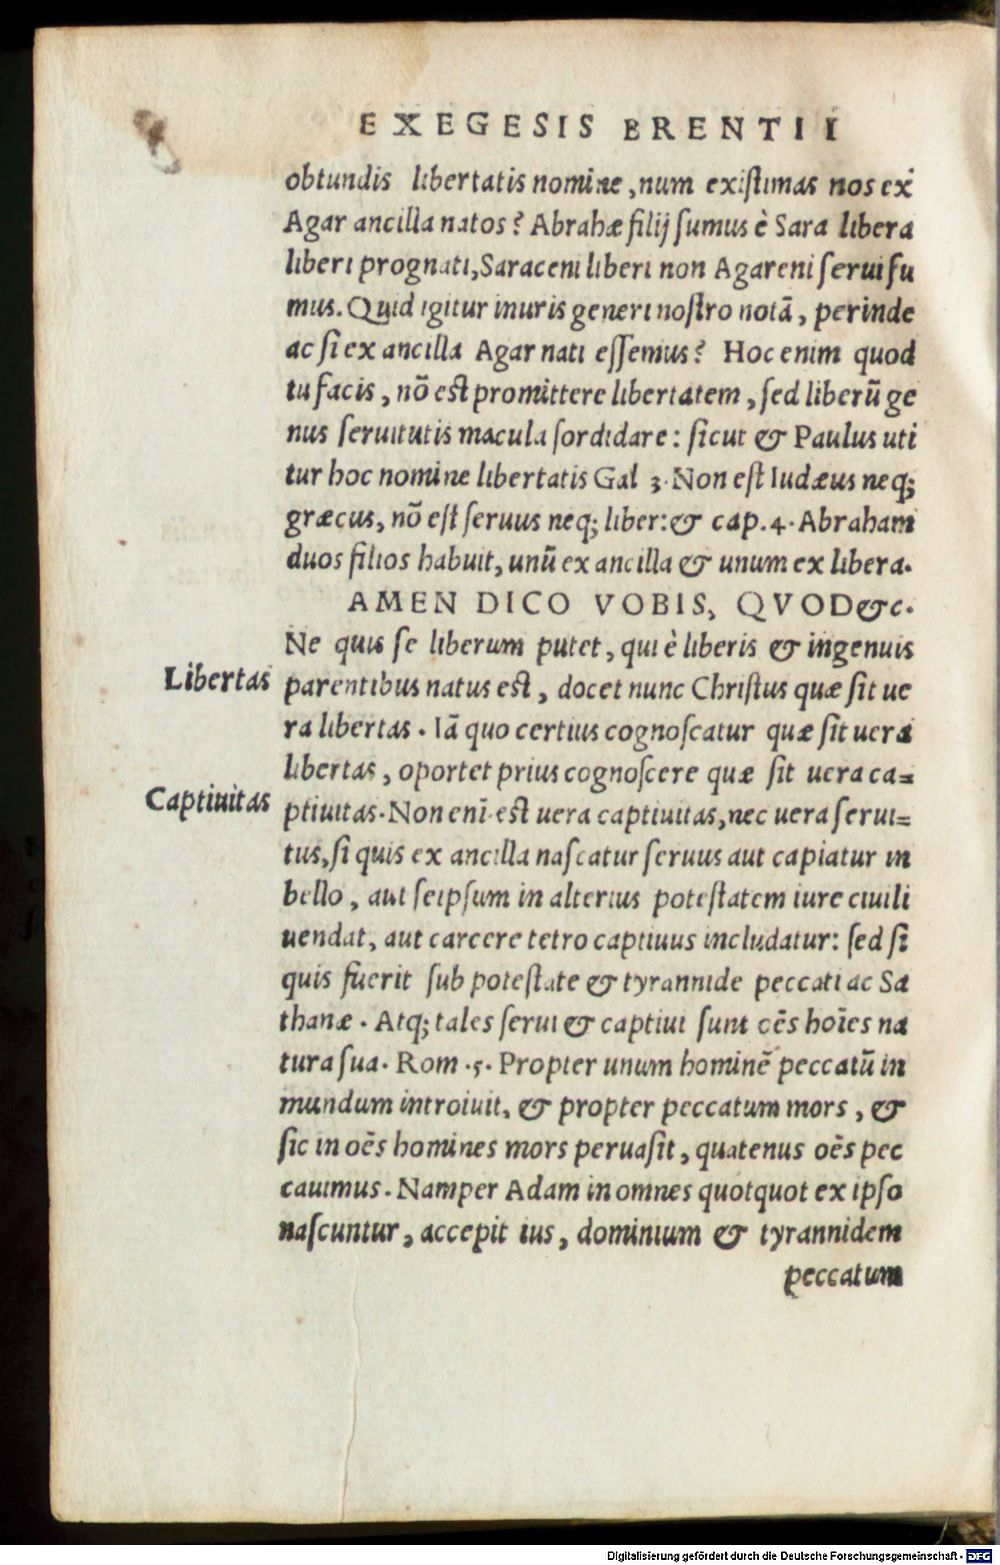 EXEGESIS BRENTII
obtundis libertatis nomine, num existimas nos ex
Agar ancilla natos? Abrahæ filij sumus è Sara libera
liberi prognati, Saraceni liberi non Agareni serui su
mus. Quid igitur inuris generi nostro notā, perinde
ac si ex ancilla Agar nati essemus? Hoc enim quod
tu facis, nō est promittere libertatem, sed liberū ge
nus seruitutis macula sordidare: sicut & Paulus uti
tur hoc nomine libertatis Gal 3. Non est Iudæus neq;
græcus, nō est seruus neq; liber: & cap. 4. Abraham
duos filios habuit, unū ex ancilla & unum ex libera.
AMEN DICO VOBIS, QVOD &c.
Ne quis se liberum putet, qui è liberis & ingenuis
Libertas parentibus natus est, docet nunc Christus quæ sit ue
ra libertas. Iā quo certius cognoscatur quæ sit uera
libertas, oportet prius cognoscere quæ sit uera ca=
Captiuitas ptiuitas. Non enī est uera captiuitas, nec uera serui=
tus, si quis ex ancilla nascatur seruus aut capiatur in
bello, aut seipsum in alterius potestatem iure ciuili
uendat, aut carcere tetro captiuus includatur: sed si
quis fuerit sub potestate & tyrannide peccati ac Sa
thanæ. Atq; tales serui & captiui sunt oēs hoīes na
tura sua. Rom .5. Propter unum hominē peccatū in
mundum introiuit, & propter peccatum mors, &
sic in oēs homines mors peruasit, quatenus oēs pec
cauimus. Nam per Adam in omnes quotquot ex ipso
nascuntur, accepit ius, dominium & tyrannidem
peccatum
Digitalisierung gefördert durch die Deutsche Forschungsgemeinschaft - DFG